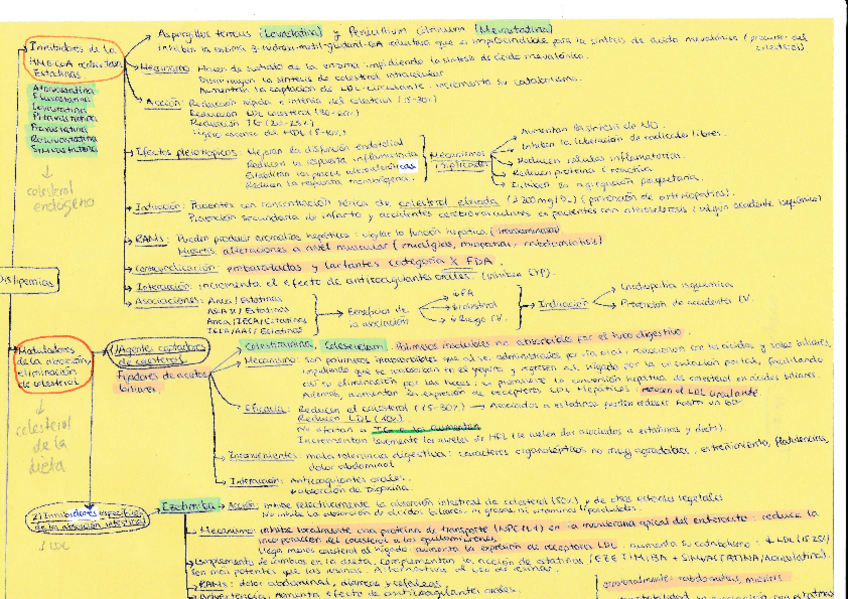 Inhibidores de la
HMG CoA reductasa
Estatinas
Atorvastatina
Fluvastatina
Lovastatina
Pitavastatina
Pravastatina
Rosuvastatina
Simvastatina
colesterol
endógeno
Aspergillos terreus (Lovastatina) y Penicillium citrinum (Mevastatina)
Inhiben la enzima 3-hidroxi-metil-glutaril-CoA reductasa que es imprescindible para la síntesis de ácido mevalónico (precursor del colesterol)
Mecanismo: Hacen de sustrato de la enzima impidiendo la síntesis de ácido mevalónico.
Disminuyen la síntesis de colesterol intracelular
Aumentan la captación de LDL-circulante: incrementa su catabolismo.
Acción: Reducción rápida e intensa del colesterol (15-30%)
Reducción LDL colesterol
Reducción TG
Ligero aumento de HDL (5-10%)
Efectos pleiotrópicos: Mejoran la disfunción endotelial
Reducen la respuesta inflamatoria
Estabilizan las placas ateroscleróticas
Reducen la respuesta trombogénica.
Mecanismos
implicados
Aumentan la síntesis de NO
Inhiben la liberación de radicales libres.
Reducen células inflamatorias.
Reducen proteína C reactiva
Inhiben la agregación plaquetaria.
Indicación: Pacientes con concentración sérica de colesterol elevada (≥200mg/dL) (prevención de arteriopatías).
Prevención secundaria de infarto y accidentes cerebrovasculares en pacientes con aterosclerosis (algún accidente isquémico)
RAMs: Pueden producir anomalías hepáticas: vigilar la función hepática (transaminasas)
Mayores alteraciones a nivel muscular (mialgias, miopatías, rabdomiolisis)
Contraindicación: embarazadas y lactantes categoría X FDA.
Interacción: incrementa el efecto de anticoagulantes orales. (inhiben CYP).
Asociaciones: Arca / Estatinas
ARA II / Estatinas
Arca / IECA / Estatinas
IECA / AAS / Estatinas
Beneficios de
la asociación
↓PA
↓colesterol
↓Riesgo CV.
Indicación
Cardiopatía isquémica
Prevención de accidente CV.
Dislipemias
de la absorción,
eliminación
de colesterol
colesterol
de la
dieta
1) Agentes captadores
de colesterol
Fijadores de ácidos
biliares.
Colestiramina, Colesevelam. Polímeros insolubles no absorbibles por el tubo digestivo.
Mecanismo: son polímeros inabsorbibles que al ser administrados por vía oral, reaccionan con los ácidos y sales biliares,
impidiendo que se reabsorban en el yeyuno y regresen al hígado por la circulación portal, facilitando
así su eliminación por las heces, y promueve la conversión hepática de colesterol en ácidos biliares.
Además, aumentan la expresión de receptores LDL hepáticos: reducen el LDL circulante.
Eficacia: Reducen el colesterol (15-30%) → Asociados a estatinas pueden reducir hasta un 60%
Reducen LDL
No afectan a TG o los aumentan
Incrementan levemente los niveles de HDL (se suelen dar asociados a estatinas y dieta).
Inconvenientes: mala tolerancia digestiva: caracteres organolépticos no muy agradables, estreñimiento, flatulencia,
dolor abdominal
Interacción: Anticoagulantes orales.
↓ absorción de Digoxina.
2) Inhibidores específicos
de la absorción intestinal
↓ LDL
Ezetimiba
Acción: inhibe selectivamente la absorción intestinal de colesterol (50%) y de otros esteroles vegetales
No inhibe la absorción de ácidos biliares, ni grasas ni vitaminas liposolubles.
Mecanismo: inhibe localmente una proteína de transporte (NPC1L1) en la membrana apical del enterocito: reduce la
incorporación del colesterol a los quilomicrones.
Llega menos colesterol al hígado: aumenta la expresión de receptores LDL. aumenta su catabolismo. ↓ LDL (15-25%)
Acompañamiento de cambios en la dieta, complementan la acción de estatinas (EZETIMIBA + SIMVASTATINA/Atorvastatina).
Son más potentes que las resinas. Alternativa al uso de resinas.
RAMs: dolor abdominal, diarreas y cefaleas.
Advertencia: aumenta efecto de anticoagulantes orales.